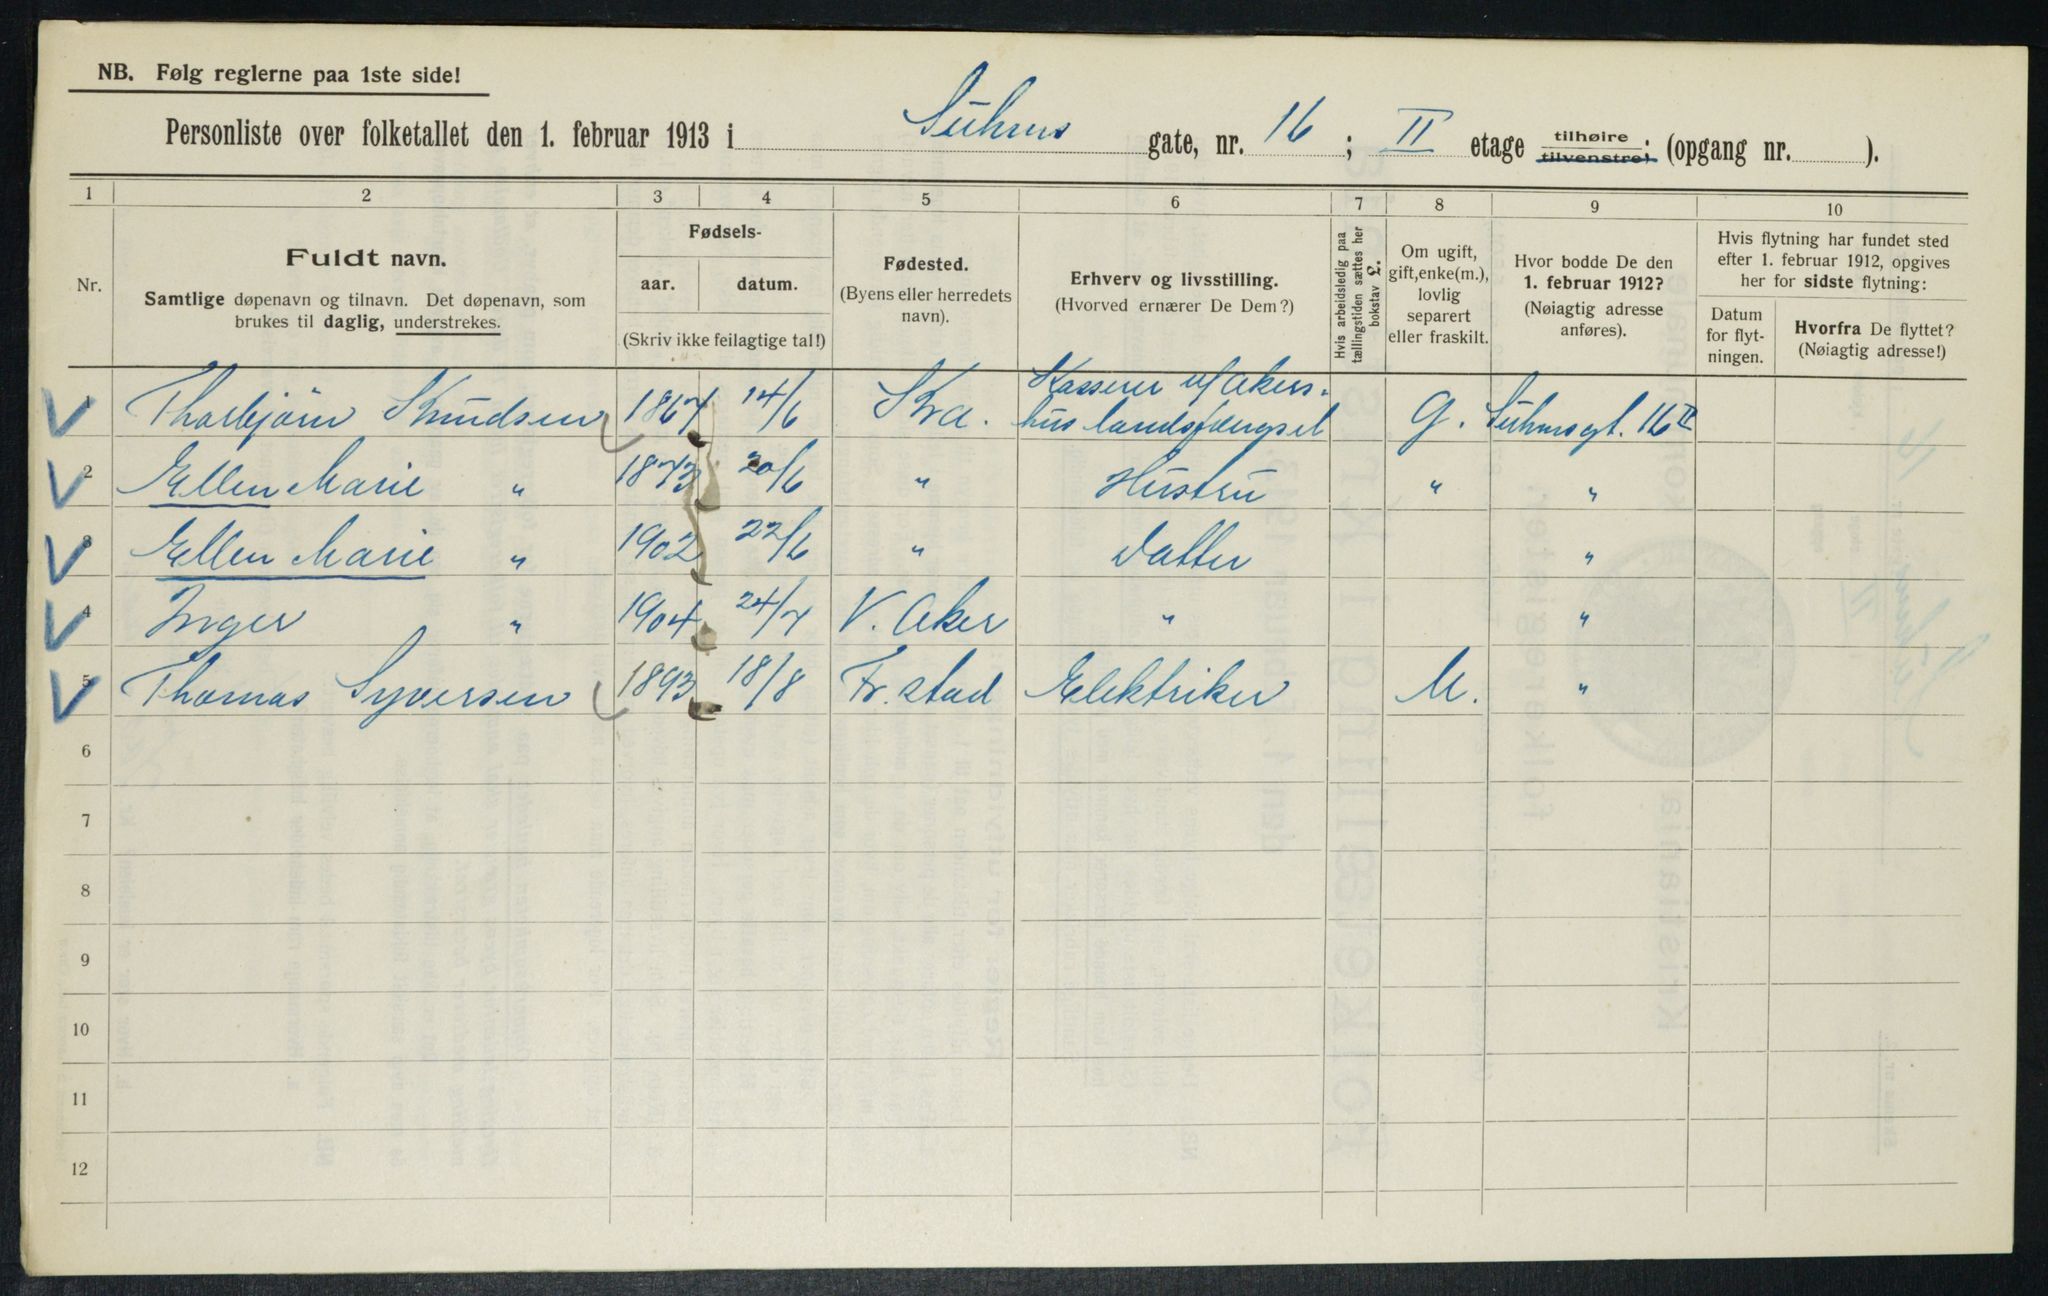 NB. Følg reglerne paa 1ste side!
Personliste over folketallet den 1. februar 1913 i Suhms gate, nr. 16 ; II etage tilhøire tilvenstre; (opgang nr. ).
1 2 3 4 5 6 7 8 9 10
Nr.
Fuldt navn.
Samtlige døpenavn og tilnavn. Det døpenavn, som
brukes til daglig, understrekes.
Fødsels-
aar. datum.
(Skriv ikke feilagtige tal!)
Fødested.
(Byens eller herredets
navn).
Erhverv og livsstilling.
(Hvorved ernærer De Dem?)
Hvis arbeidsledig paa
tællingstiden sættes her
bokstav L.
Om ugift,
gift, enke(m.),
lovlig
separert
eller fraskilt.
Hvor bodde De den
1. februar 1912?
(Nøiagtig adresse
anføres).
Hvis flytning har fundet sted
efter 1. februar 1912, opgives
her for sidste flytning:
Datum
for flyt-
ningen.
Hvorfra De flyttet?
(Nøiagtig adresse!)
1 Thorbjörn Knudsen 1867 14/6 Kra. Kasserer v/ Akers-
hus landsfængsel G. Suhmsgt. 16 II
2 Ellen Marie " 1873 20/6 " Hustru " "
3 Ellen Marie " 1902 22/6 " Datter "
4 Inger " 1904 24/7 V. Aker " "
5 Thomas Syversen 1893 18/8 Fr.stad Elektriker U. "
6
7
8
9
10
11
12